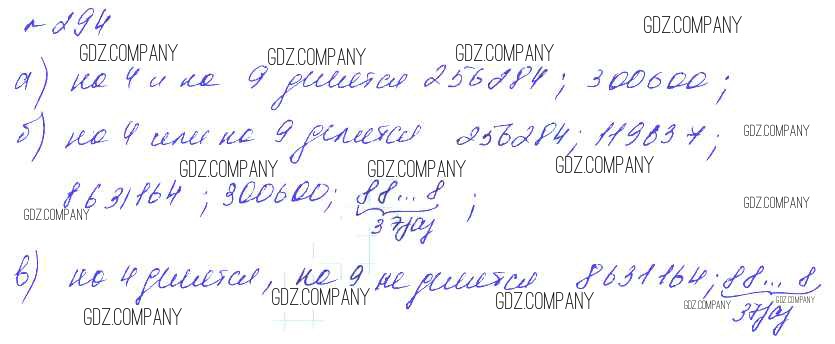 № 294
GDZ.COMPANY
GDZ.COMPANY GDZ.COMPANY GDZ.COMPANY
а) на 4 и на 9 делится 256284; 300600;
б) на 4 или на 9 делится 256284; 119637;
GDZ.COMPANY
GDZ.COMPANY GDZ.COMPANY GDZ.COMPANY
8631164; 300600; 88...8;
37 раз
GDZ.COMPANY GDZ.COMPANY
в) на 4 делится, на 9 не делится 8631164; 88...8
37 раз
GDZ.COMPANY GDZ.COMPANY GDZ.COMPANY GDZ.COMPANY GDZ.COMPANY